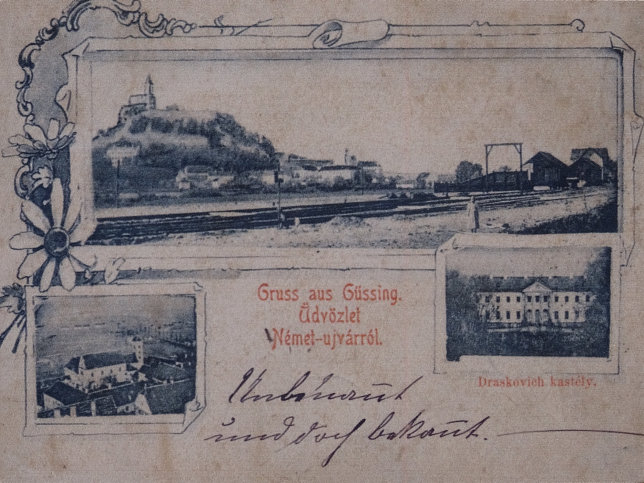 Gruss aus Güssing.
Üdvözlet
Német-ujvárról.
Draskovich kastély.
Unbekannt
und doch bekannt.